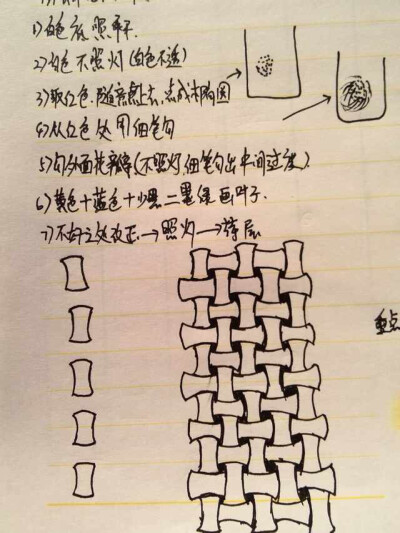 1)白色底照干.
2)白色不照灯(白色不透)
3)取红色,随意点上去,点成椭圆
4)从红色处用细笔勾
5)勾外面花瓣(不照灯,细笔勾出中间过度)
6)黄色+蓝色+少黑=墨绿画叶子.
7)不好之处改正→照灯→层
重点